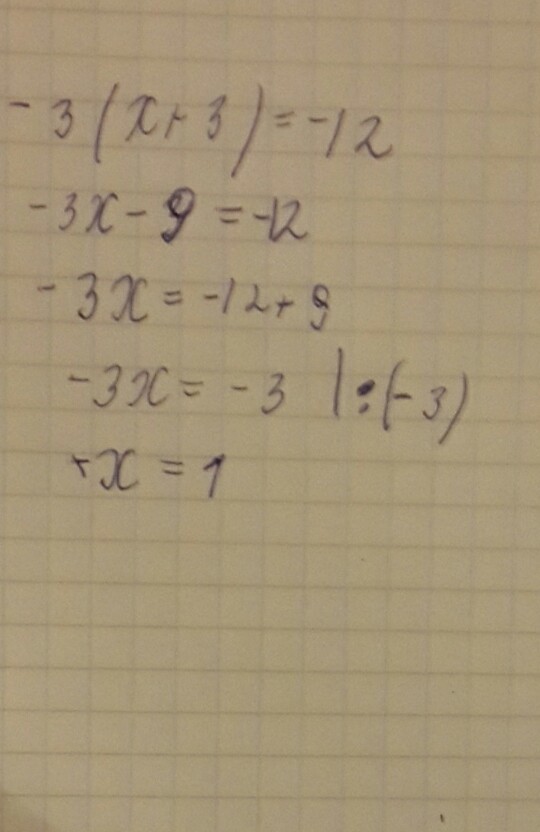 -3(x+3)=-12
-3x-9=-12
-3x=-12+9
-3x=-3 |:(-3)
+x=1